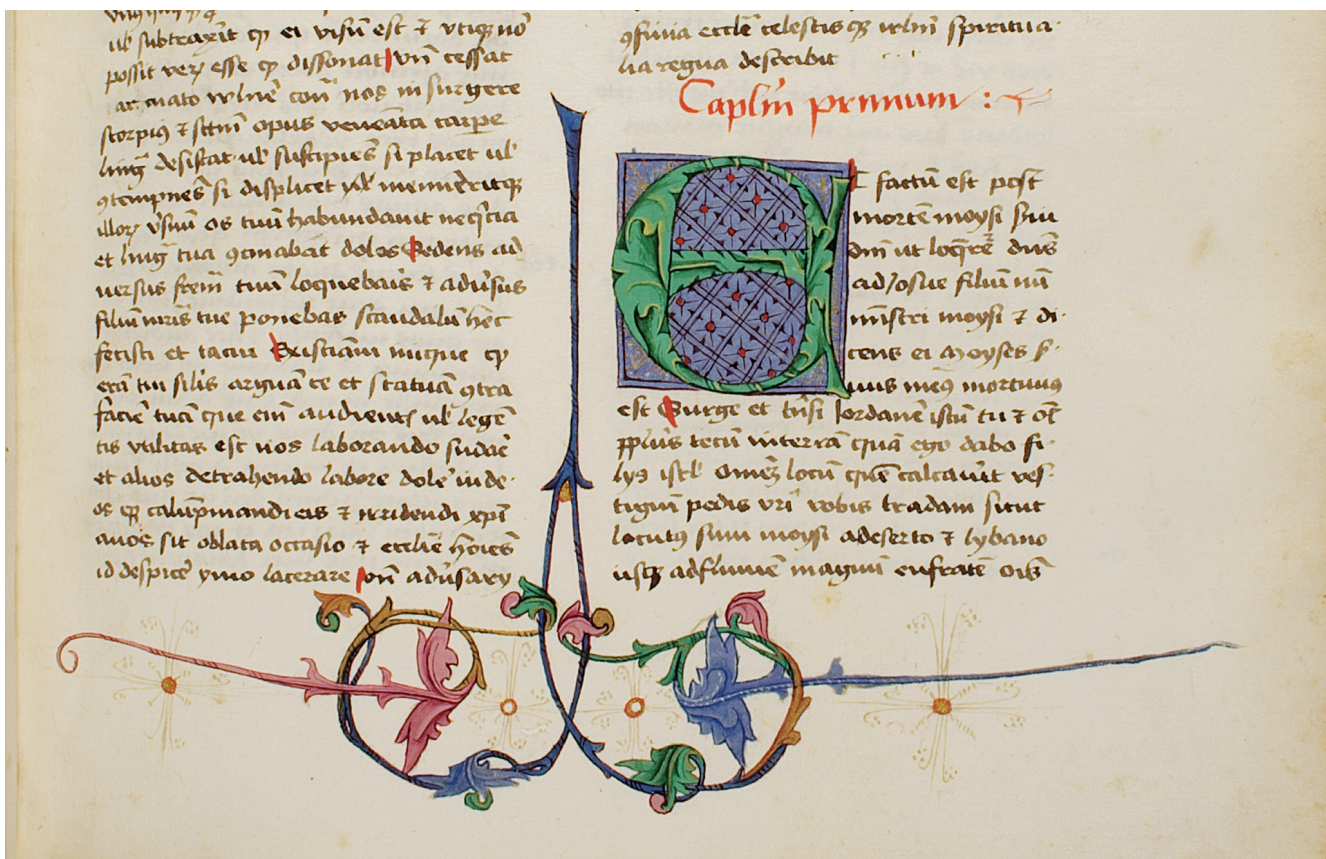 ul̉ subtraxit qꝫ ei visū est ⁊ vtiqꝫ nō
possit veꝝ esse qꝫ dissonat vn̄ cesset
arcuato wlnē cont̉ nos insurgere
scorpiꝯ ⁊ sc̄m opus venēata carpe
ling̉ desistat ul̉ suscipiēs si placet ul̉
ꝯtempnēs si displicet
illoꝝ v̉suū os tuū habundauit neq̉cia
et ling̉ tua ꝯcinabat dolos Sedens ad
uersus fr̄em tuū loquebaris ⁊ adủsus
filiū mr̄is tue ponebas scandalū hec
fecisti et tacui Existiāsti inique qꝫ
erā tui sil̉is arguā te et statuā ꝯtra
faciē tuā que eīm audientꝭ ul̉ legē
tis vtilitas est nos laborando sudāe
et alios detrahendo labore dol̄e iude
os qꝫ calūpniandi eis ⁊ irridendi xp̄i
anos sit oblata occasio ⁊ eccl̄ie hoīes
id despic̉e ymo lacerare vn̄ adủsarij
ꝯfinia eccl̄e celestisqꝫ irl̄m spiritua
lia regna describit
Caplm̄ primum :
E T factū est post
mortem moysi s̉ui
dm̄ ut loq̉ret̉ dn̄s
ad Iosue filiū nū
mīstri moysi ⁊ di
cens ei Moyses s̉
uus meꝯ mortuus
est Surge et tn̄si Iordanē istū tu ⁊ oīs
ppl̄us tecū in terrā quā ego dabo fi
lijs isrl̉ Omēꝫ locū quē calcaủit ves
tigiū pedis vr̄i vobis tradam sicut
locutꝯ sum moysi a deserto ⁊ lybano
usqꝫ ad fluuiū magnū eufratē oīs